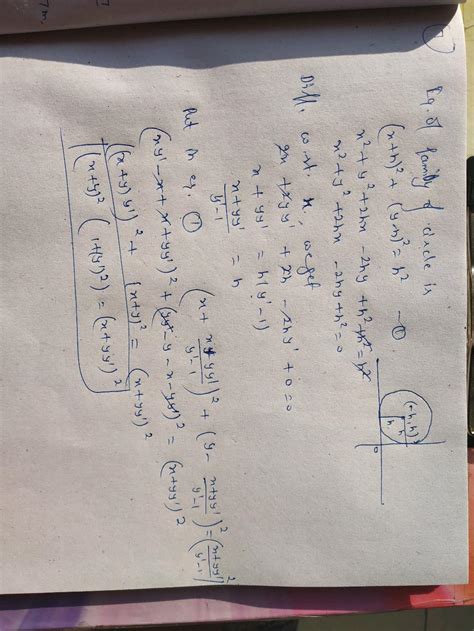 Eq. of family of circle is
(x+h)² + (y-h)² = h² — ①
x² + y² + 2hx - 2hy + h² + h² = h²
x² + y² + 2hx - 2hy + h² = 0
Diff. w.r.t. x, we get
2x + 2yy' + 2h - 2hy' + 0 = 0
x + yy' = h(y'-1)
x+yy' / y'-1 = h
Put in eq. ①
(x + x+yy' / y'-1)² + (y - x+yy' / y'-1)² = (x+yy' / y'-1)²
(xy' - x + x + yy')² + (yy' - y - x - yy')² = (x+yy')²
((x+y)y')² + (x+y)² = (x+yy')²
(x+y)² (1+(y')²) = (x+yy')²
(-h,h)
h
h
0
7m.